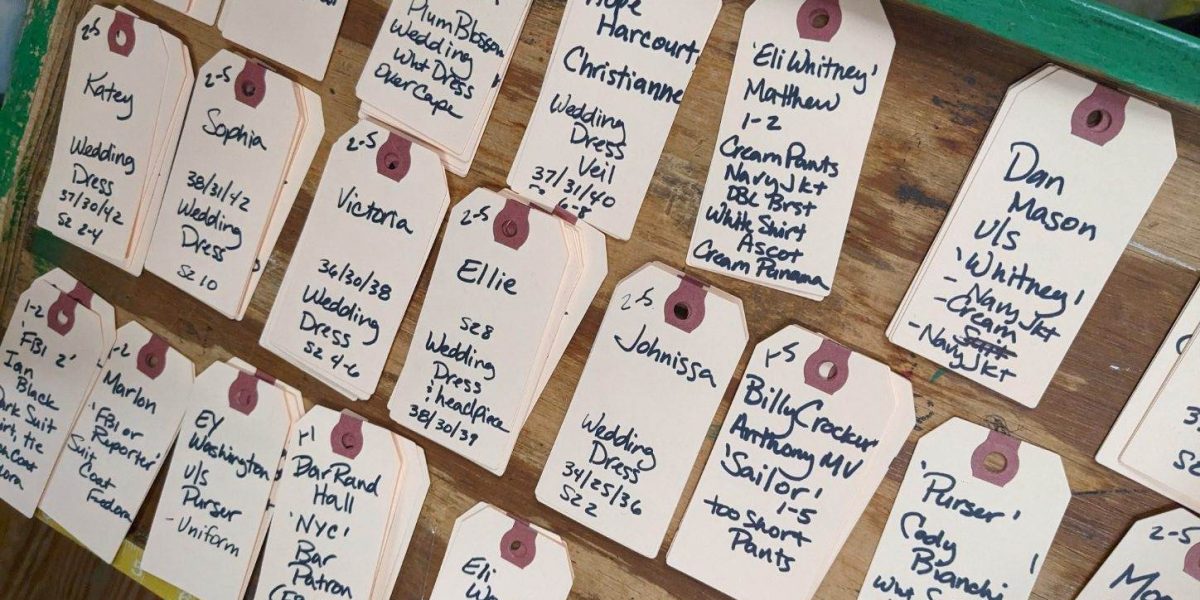 Plum Blossom
Wedding
Wht Dress
Over Cape
Hope
Harcourt
Christianne
Wedding
Dress
Veil
37/31/40
6-8
'Eli Whitney'
Matthew
1-2
Cream Pants
Navy Jkt
DBL Brst
White Shirt
Ascot
Cream Panama
Dan
Mason
U/S
'Whitney'
- Navy Jkt
- Cream
- Navy Jkt
2-5
Katey
Wedding
Dress
37/30/42
SZ 2-4
2-5
Sophia
38/31/42
Wedding
Dress
SZ 10
2-5
Victoria
36/30/38
Wedding
Dress
SZ 4-6
2-5
Ellie
SZ 8
Wedding
Dress
& headpiece
38/30/39
2-5
Johnissa
Wedding
Dress
34/25/36
SZ 2
1-5
Billy Crocker
Anthony MV
'Sailor'
1-5
too short
Pants
'Purser'
Cady
Bianchi
1-2
'FBI 2'
Ian
Black
Dark Suit
Marlon
'FBI or
Reporter'
Suit
Coat
Fedora
EY
Washington
U/S
Purser
- Uniform
Bar Rand
Hall
'NYC'
Bar
Patron
Eli
2-5